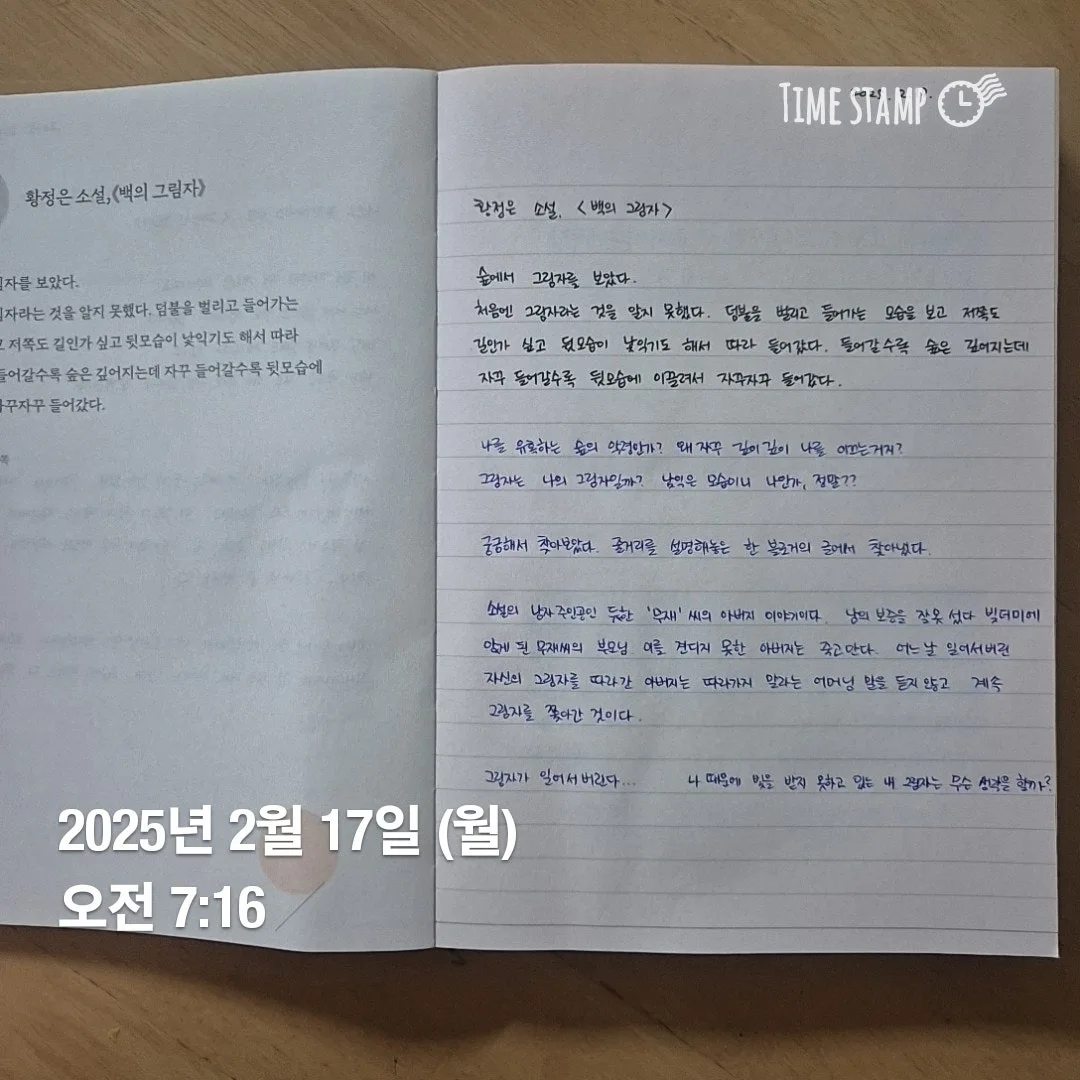 TIME STAMP
황정은 소설,《백의 그림자》
림자를 보았다.
림자라는 것을 알지 못했다. 덤불을 벌리고 들어가는
고 저쪽도 길인가 싶고 뒷모습이 낯익기도 해서 따라
들어갈수록 숲은 깊어지는데 자꾸 들어갈수록 뒷모습에
자꾸자꾸 들어갔다.
쪽
황정은 소설, <백의 그림자>
숲에서 그림자를 보았다.
처음엔 그림자라는 것을 알지 못했다. 덤불을 벌리고 들어가는 모습을 보고 저쪽도
길인가 싶고 뒷모습이 낯익기도 해서 따라 들어갔다. 들어갈수록 숲은 깊어지는데
자꾸 들어갈수록 뒷모습에 이끌려서 자꾸자꾸 들어갔다.
나를 유혹하는 숲의 악령인가? 왜 자꾸 깊이깊이 나를 이끄는거지?
그림자는 나의 그림자일까? 낯익은 모습이니 나인가, 정말??
궁금해서 찾아보았다. 줄거리를 설명해놓은 한 블로거의 글에서 찾아냈다.
소설의 남자주인공인 '무재'씨의 아버지 이야기이다. 남의 보증을 잘못 섰다 빚더미에
앉게 된 무재씨의 부모님. 이를 견디지 못한 아버지는 죽고만다. 어느 날 일어서버린
자신의 그림자를 따라간 아버지는 따라가지 말라는 어머님 말을 듣지않고 계속
그림자를 쫓아간 것이다.
그림자가 일어서버린다... 나 때문에 빛을 받지 못하고 있는 내 그림자는 무슨 생각을 할까?
2025년 2월 17일 (월)
오전 7:16